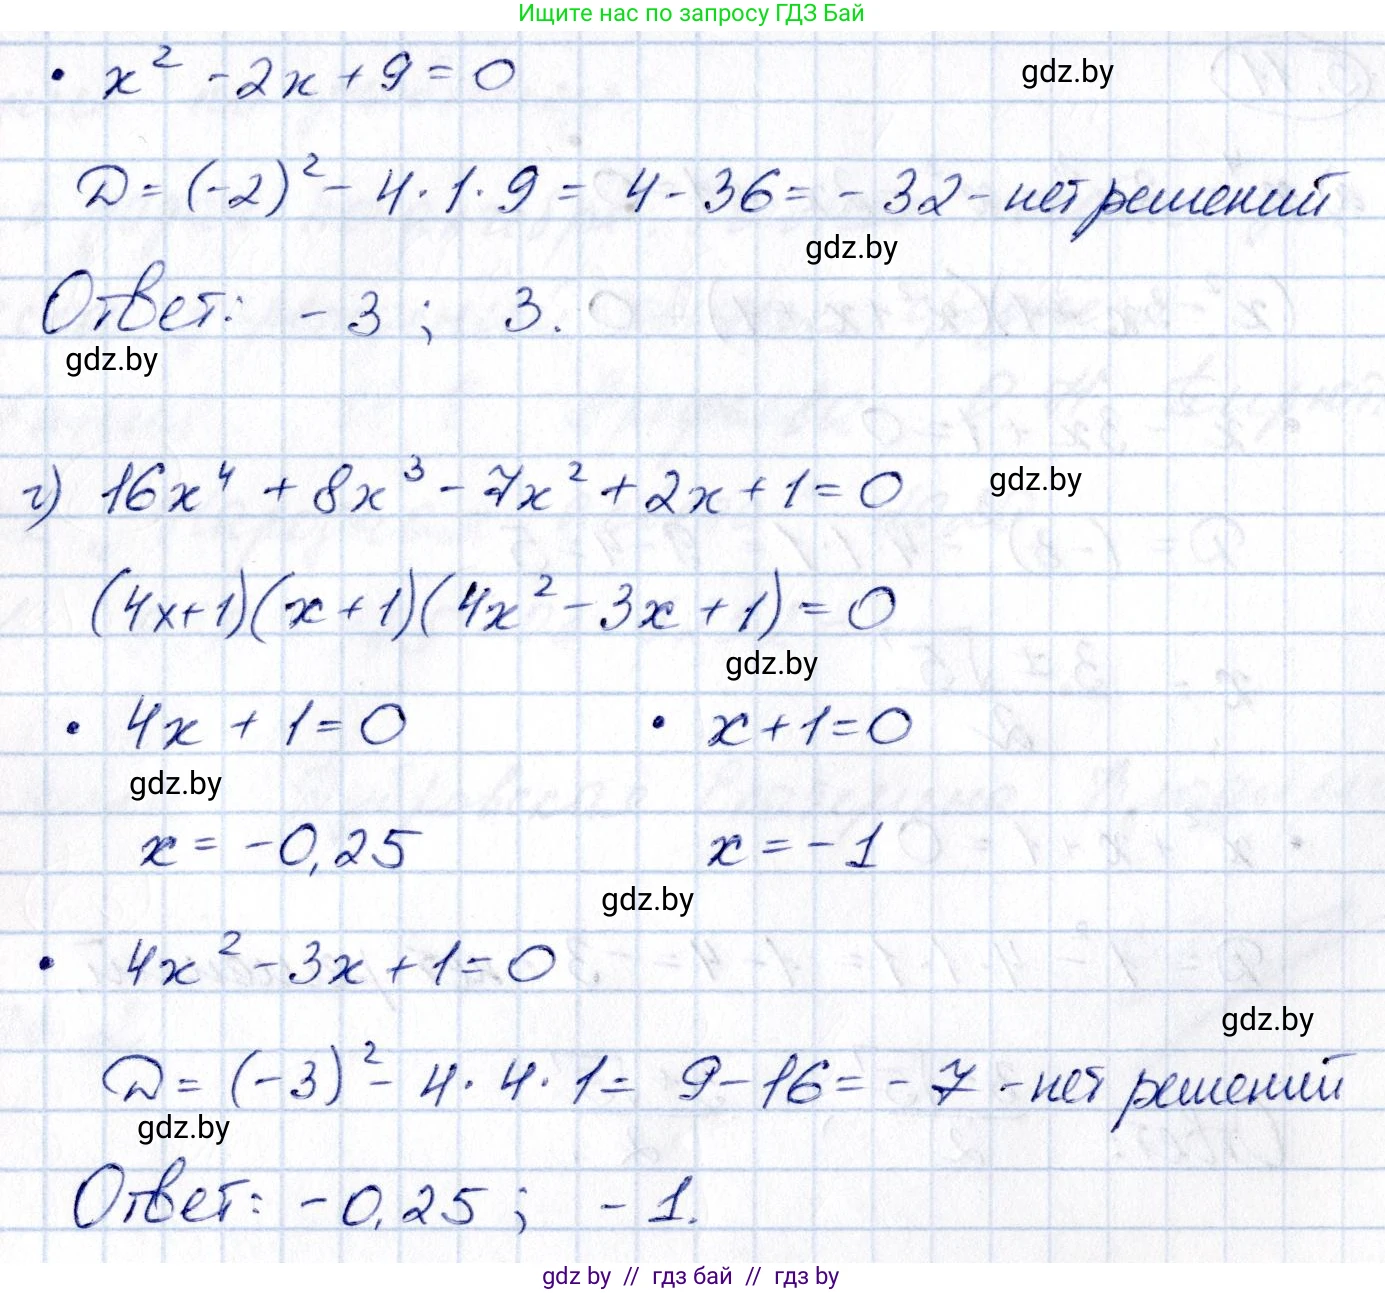 Ищите нас по запросу ГДЗ Бай
• x² - 2x + 9 = 0
gdz.by
D = (-2)² - 4 · 1 · 9 = 4 - 36 = - 32 - нет решений
gdz.by
Ответ: - 3 ; 3.
gdz.by
г) 16x⁴ + 8x³ - 7x² + 2x + 1 = 0
gdz.by
(4x+1)(x+1)(4x² - 3x + 1) = 0
gdz.by
• 4x + 1 = 0 • x + 1 = 0
gdz.by
x = -0,25 x = - 1
gdz.by
• 4x² - 3x + 1 = 0
gdz.by
D = (-3)² - 4 · 4 · 1 = 9 - 16 = - 7 - нет решений
gdz.by
Ответ: - 0,25 ; - 1.
gdz by // гдз бай // гдз by